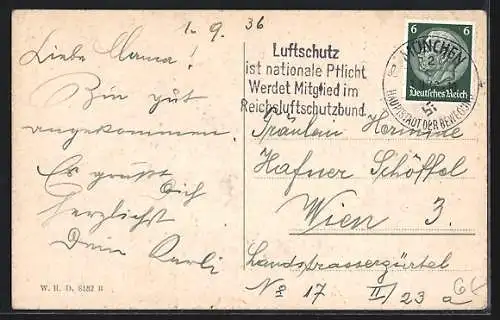 1. 9. 36
Liebe Mama!
Bin gut
angekommen.
Es grüßt
Dich
herzlichst
Dein Karli
W. H. D. 8182 B
Luftschutz
ist nationale Pflicht
Werdet Mitglied im
Reichsluftschutzbund
MÜNCHEN
HAUPTSTADT DER BEWEGUNG
6 6
Deutsches Reich
Fräulein Hermine
Hafner Schöffel
Wien 3.
Landstrassergürtel
No 17 II/23a